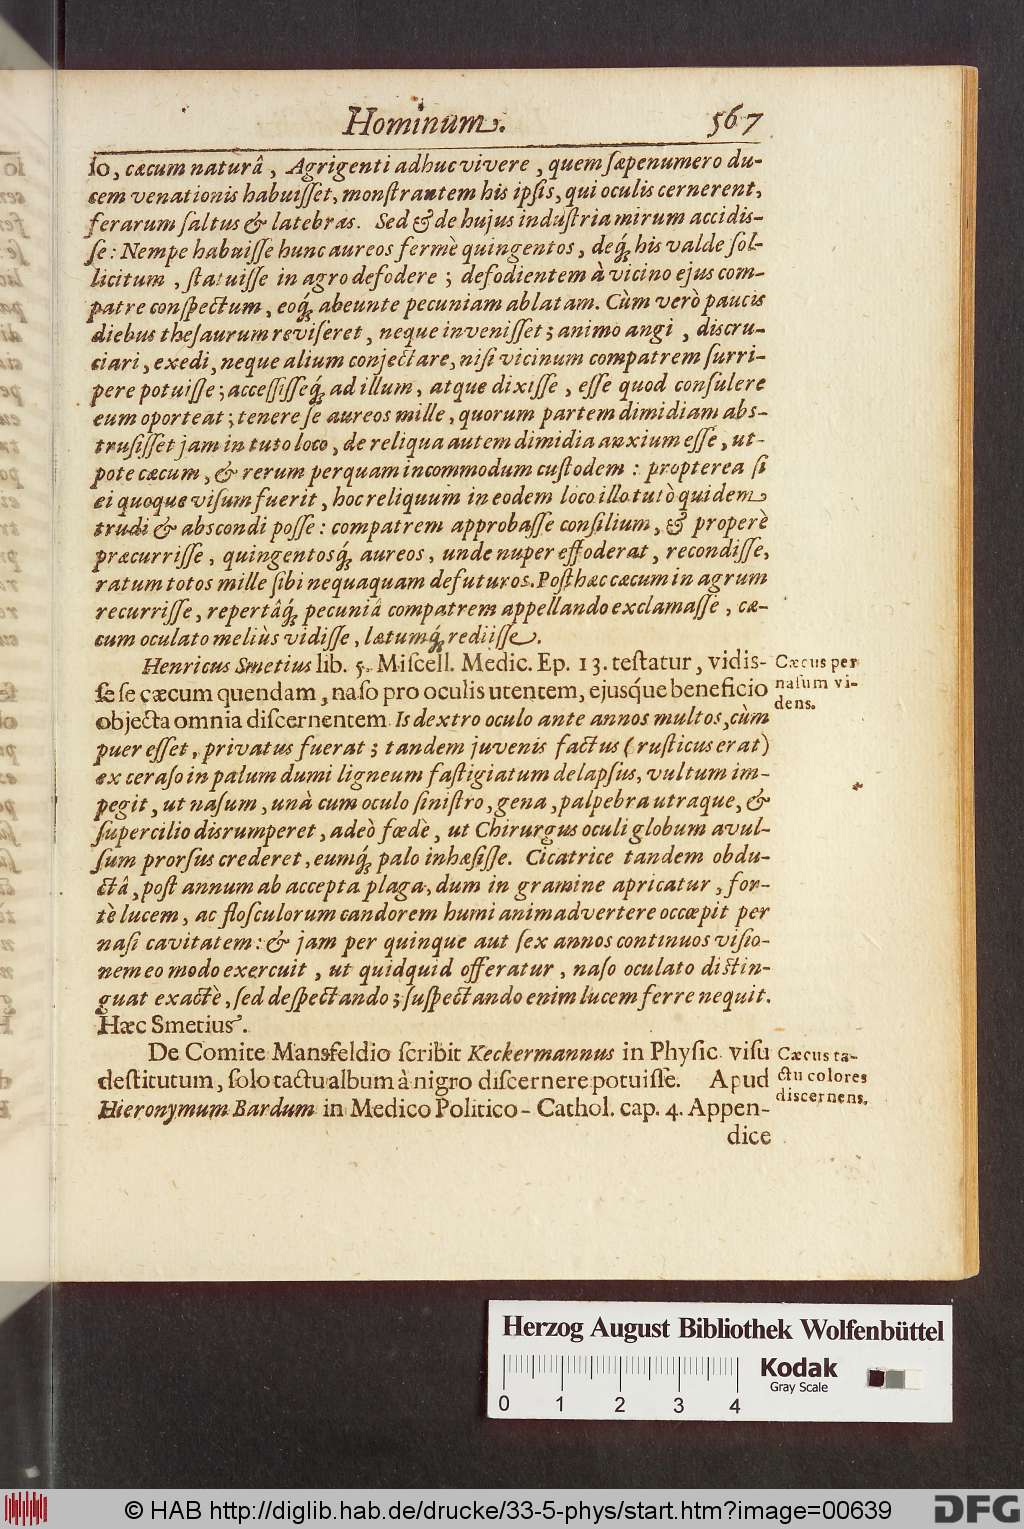 Hominum. 567
lo, cæcum naturâ, Agrigenti adhuc vivere, quem sæpenumero du-
cem venationis habuisset, monstrantem his ipsis, qui oculis cernerent,
ferarum saltus & latebras. Sed & de hujus industria mirum accidis-
se: Nempe habuisse hunc aureos fermè quingentos, deq́; his valde sol-
licitum, statuisse in agro defodere; defodientem à vicino ejus com-
patre conspectum, eoq́; abeunte pecuniam ablatam. Cùm verò paucis
diebus thesaurum reviseret, neque invenisset; animo angi, discru-
ciari, exedi, neque alium conjectare, nisi vicinum compatrem surri-
pere potuisse; accessisseq́; ad illum, atque dixisse, esse quod consulere
eum oporteat; tenere se aureos mille, quorum partem dimidiam abs-
trusisset jam in tuto loco, de reliqua autem dimidia anxium esse, ut-
pote cæcum, & rerum perquam incommodum custodem: propterea si
ei quoque visum fuerit, hoc reliquum in eodem loco illo tutò quidem
trudi & abscondi posse: compatrem approbasse consilium, & properè
præcurrisse, quingentosq́; aureos, unde nuper effoderat, recondisse,
ratum totos mille sibi nequaquam defuturos. Post hæc cæcum in agrum
recurrisse, repertâq́; pecuniâ compatrem appellando exclamasse, cæ-
cum oculato meliùs vidisse, lætumq́; rediisse.
Henricus Smetius lib. 5. Miscell. Medic. Ep. 13. testatur, vidis-
se se cæcum quendam, naso pro oculis utentem, ejusq́ue beneficio
objecta omnia discernentem. Is dextro oculo ante annos multos, cùm
puer esset, privatus fuerat; tandem juvenis factus (rusticus erat)
ex ceraso in palum dumi ligneum fastigiatum delapsus, vultum im-
pegit, ut nasum, unà cum oculo sinistro, gena, palpebra utraque, &
supercilio disrumperet, adeò fœdè, ut Chirurgus oculi globum avul-
sum prorsus crederet, eumq́; palo inhæsisse. Cicatrice tandem obdu-
ctâ, post annum ab accepta plaga, dum in gramine apricatur, for-
tè lucem, ac flosculorum candorem humi animadvertere occœpit per
nasi cavitatem: & jam per quinque aut sex annos continuos visio-
nem eo modo exercuit, ut quidquid offeratur, naso oculato distin-
guat exactè, sed despectando; suspectando enim lucem ferre nequit.
Hæc Smetius.
De Comite Mansfeldio scribit Keckermannus in Physic. visu
destitutum, solo tactu album à nigro discernere potuisse. Apud
Hieronymum Bardum in Medico Politico-Cathol. cap. 4. Appen-
dice
Cæcus per
nasum vi-
dens.
Cæcus ta-
ctu colores
discernens.
Herzog August Bibliothek Wolfenbüttel
0 1 2 3 4
Kodak
Gray Scale
© HAB http://diglib.hab.de/drucke/33-5-phys/start.htm?image=00639
DFG